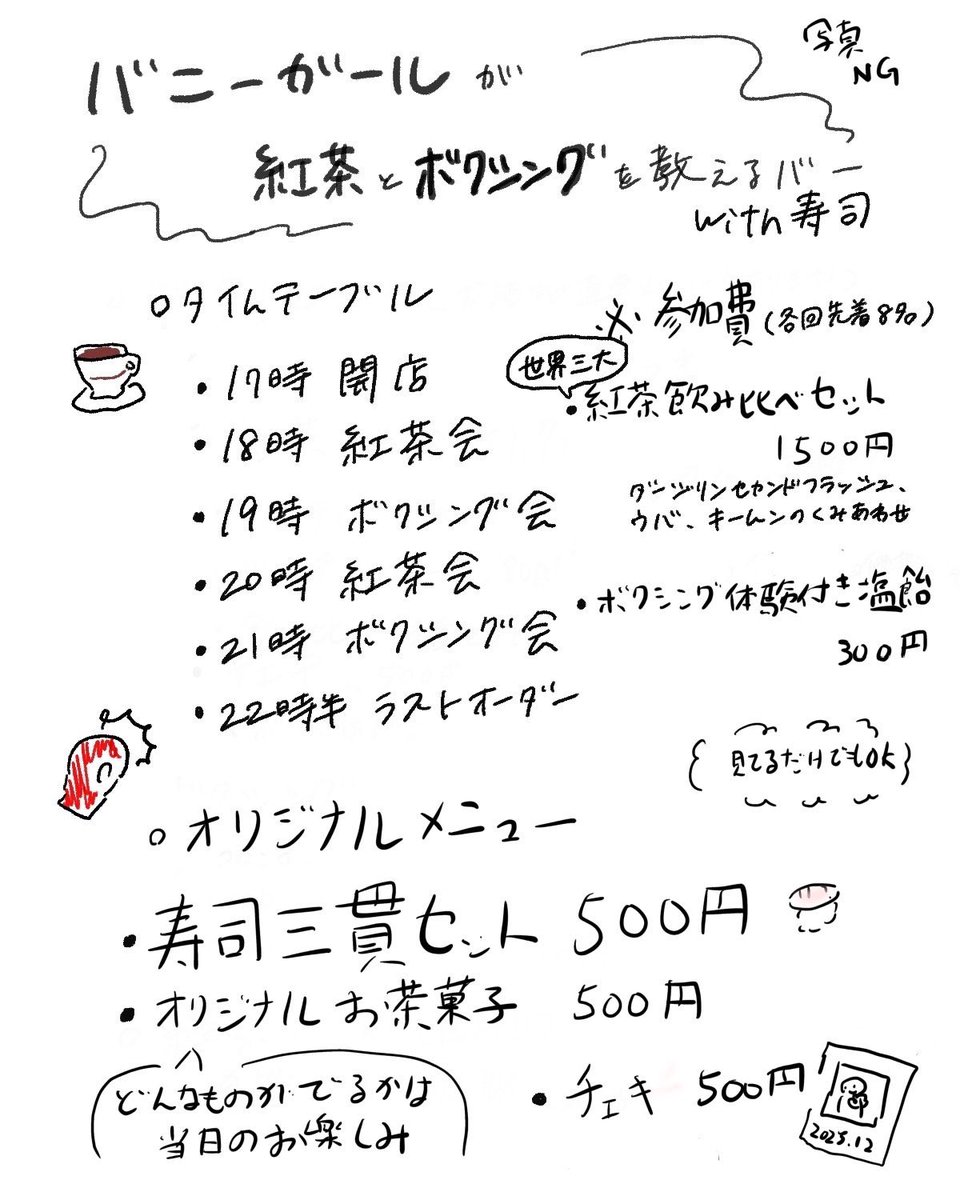 バニーガールが
写真
NG
紅茶とボクシングを教えるバー
with寿司
○タイムテーブル
・17時 開店
・18時 紅茶会
・19時 ボクシング会
・20時 紅茶会
・21時 ボクシング会
・22時半 ラストオーダー
※参加費(各回先着8名)
世界三大
・紅茶飲み比べセット
1500円
ダージリンセカンドフラッシュ、
ウバ、キームンのくみあわせ
・ボクシング体験付き塩飴
300円
{見てるだけでもOK}
○オリジナルメニュー
・寿司三貫セット 500円
・オリジナルお茶菓子 500円
どんなものがでるかは
当日のお楽しみ
・チェキ 500円
2025.12